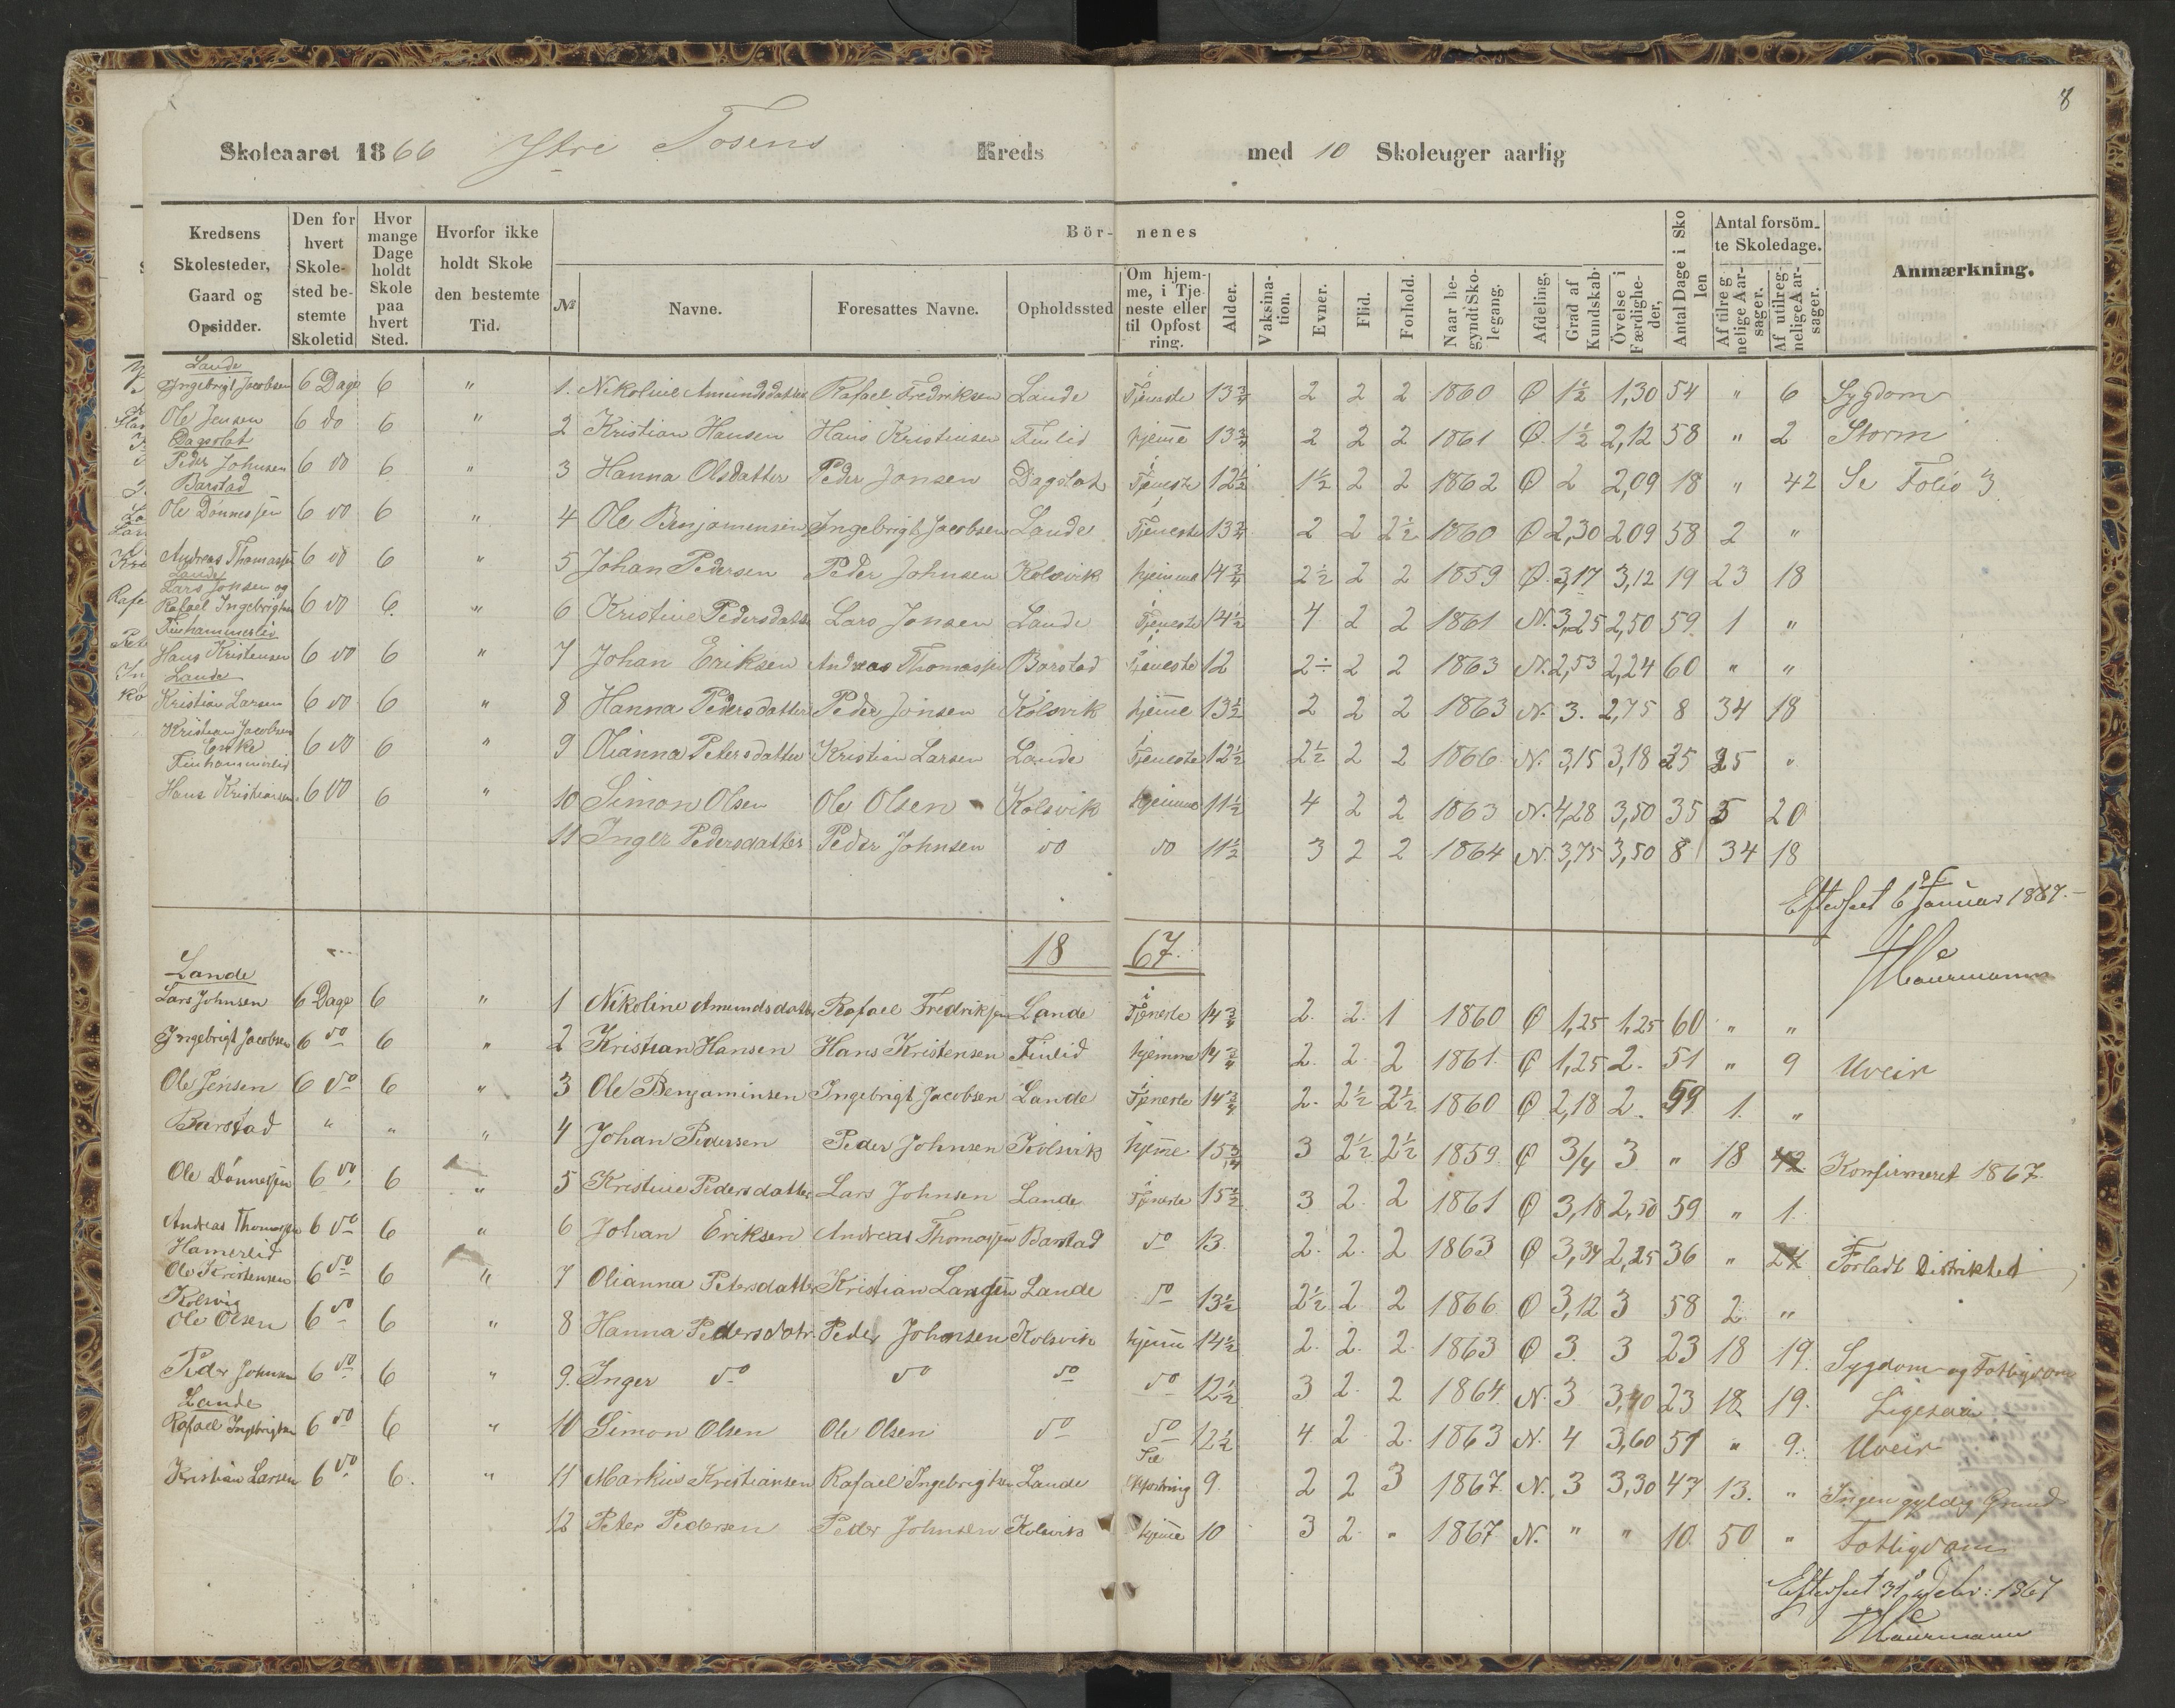 8
Skoleaaret 1866 Ytre Tosens Kreds med 10 Skoleuger aarlig
Kredsens Skolesteder, Gaard og Opsidder.
Den for hvert Skolested bestemte Skoletid
Hvor mange Dage holdt Skole paa hvert Sted.
Hvorfor ikke holdt Skole den bestemte Tid.
Bör- nenes
№
Navne.
Foresattes Navne.
Opholdssted
Om hjemme, i Tjeneste eller til Opfostring.
Alder.
Vaksination.
Evner.
Flid.
Forhold.
Naar begyndt Skolegang.
Afdeling,
Grad af Kundskab.
Övelse i Færdigheder,
Antal Dage i Skolen
Antal forsömte Skoledage.
Af tilregnelige Aarsager.
Af utilregnelige Aarsager.
Anmærkning.
Lande
Ingebrigt Jacobsen 6 Dage 6 " 1. Nikoline Amundsdatter Rafael Fredriksen Lande i Tjeneste 13 3/4 2 2 2 1860 Ø 1½ 1,30 54 " 6 Sygdom
Ole Jensen 6 do 6 " 2 Kristian Hansen Hans Kristensen Finlid hjeme 13 3/4 2 2 2 1861 Ø. 1½ 2,12 58 " 2 Storm
Dagslat
Peder Johnsen 6 do 6 " 3 Hanna Olsdatter Peder Jonsen Dagslat i Tjeneste 12½ 1½ 2 2 1862 Ø 2 2,09 18 " 42 Se Folio 3.
Barstad
Ole Dønnesjen 6 do 6 " 4 Ole Benjamensen Ingebrigt Jacobsen Lande i Tjeneste 13 3/4 2 2 2½ 1860 Ø 2,30 209 58 2 "
Andreas Thomassen 6 do 6 " 5 Johan Pedersen Peder Johnsen Kolsvik hjemme 14 3/4 2½ 2 2 1859 Ø. 3,17 3,12 19 23 18
Lande
Lars Jonsen og
Rafael Ingebrigtsen 6 do 6. " 6 Kristine Pedersdatter Lars Jonsen Lande i Tjeneste 14½ 4 2 2 1861 N. 3,25 2,50 59. 1 "
Finhammerlid
Hans Kristensen 6 do 6 " 7 Johan Eriksen Andreas Thomassen Barstad i Tjeneste 12 2÷ 2 2 1863 N. 2,53 2,24 60 " "
Lande
Kristian Larsen 6 do 6 " 8 Hanna Pedersdatter Peder Jonsen Kolsvik hjeme 13½ 2 2 2 1863 N. 3. 2,75 8 34 18
Kristian Jacobsens
Enke 6 do 6 " 9 Olianna Petersdatter Kristian Larsen Lande i Tjeneste 12½ 2½ 2 2 1866 N. 3,15 3,18 35 25 "
Finhammerlid
Hans Kristiansen 6 do 6 " 10 Simon Olsen Ole Olsen Kolsvik hjemme 11½ 4 2 2 1863 N. 4,28 3,50 35 5 20
11 Inger Pedersdatter Peder Johnsen do do 11½ 3 2 2 1864 N. 3,75 3,50 8 34 18
Efterseet 6 Januar 1867.
Maurmann
18 67.
Lande
Lars Johnsen 6 Dage 6 " 1 Nikoline Amundsdatter Rafael Fredriksen Lande i Tjeneste 14 3/4 2. 2. 1 1860 Ø 1,25 1,25 60 " "
Ingebrigt Jacobsen 6 do 6 " 2 Kristian Hansen Hans Kristensen Finlid hjemme 14 3/4 2. 2 2 1861. Ø 1,25 2. 51 " 9 Uveir
Ole Jensen 6 do 6 " 3 Ole Benjaminsen Ingebrigt Jacobsen Lande i Tjeneste 14 3/4 2. 2½ 2½ 1860 Ø 2,18 2. 59 1. "
Barstad " " " 4 Johan Pedersen Peder Johnsen Kolsvik hjeme 15 3/4 3 2½ 2½ 1859. Ø 3/4 3 " 18 42 Konfirmeret 1867.
Ole Dønnesjen 6 do 6 " 5 Kristine Pedersdatter Lars Johnsen Lande i Tjeneste 15½ 3 2. 2 1861 Ø 3,18 2,50 59 " 1.
Andreas Thomassen 6 do 6 " 6 Johan Eriksen Andreas Thomassen Barstad do 13. 2. 2. 2 1863 Ø 3,34 2,25 36 " 24 Forladt Distriktet
Hamerlid
Ole Kristensen 6 do 6 " 7 Olianna Petersdatter Kristian Larsen Lande do 13½ 2½ 2 2 1866 Ø 3,12 3 58 2. "
Kolsvig
Ole Olsen 6 do 6 " 8 Hanna Pedersdotr. Peder Johnsen Kolsvik hjeme 14½ 2. 2. 2. 1863 Ø 3. 3 23 18 19. Sygdom og Fattigdom
Peder Johnsen 6 do 6 " 9. Inger do do do do 12½ 3 2. 2 1864. N. 3 3,40 23 18 19. Ligesaa
Lande
Rafael Ingebrigtsen 6 do 6 " 10 Simon Olsen Ole Olsen do do 12½ 4. 2 2. 1863 N. 4 3,60 51 " 9. Uveir
Kristian Larsen 6 do 6. " 11 Markus Kristiansen Rafael Ingebrigtsen Lande Til Opfostring 9. 2 2 3 1867. N. 3 3,30 47 13. " Ingen gyldig Grund
12 Peter Pedersen Peder Johnsen Kolsvik hjeme 10 3 2. " 1867 N. " " 10. 50 " Fattigdom
Efterseet 31 Decbr: 1867
Maurmann